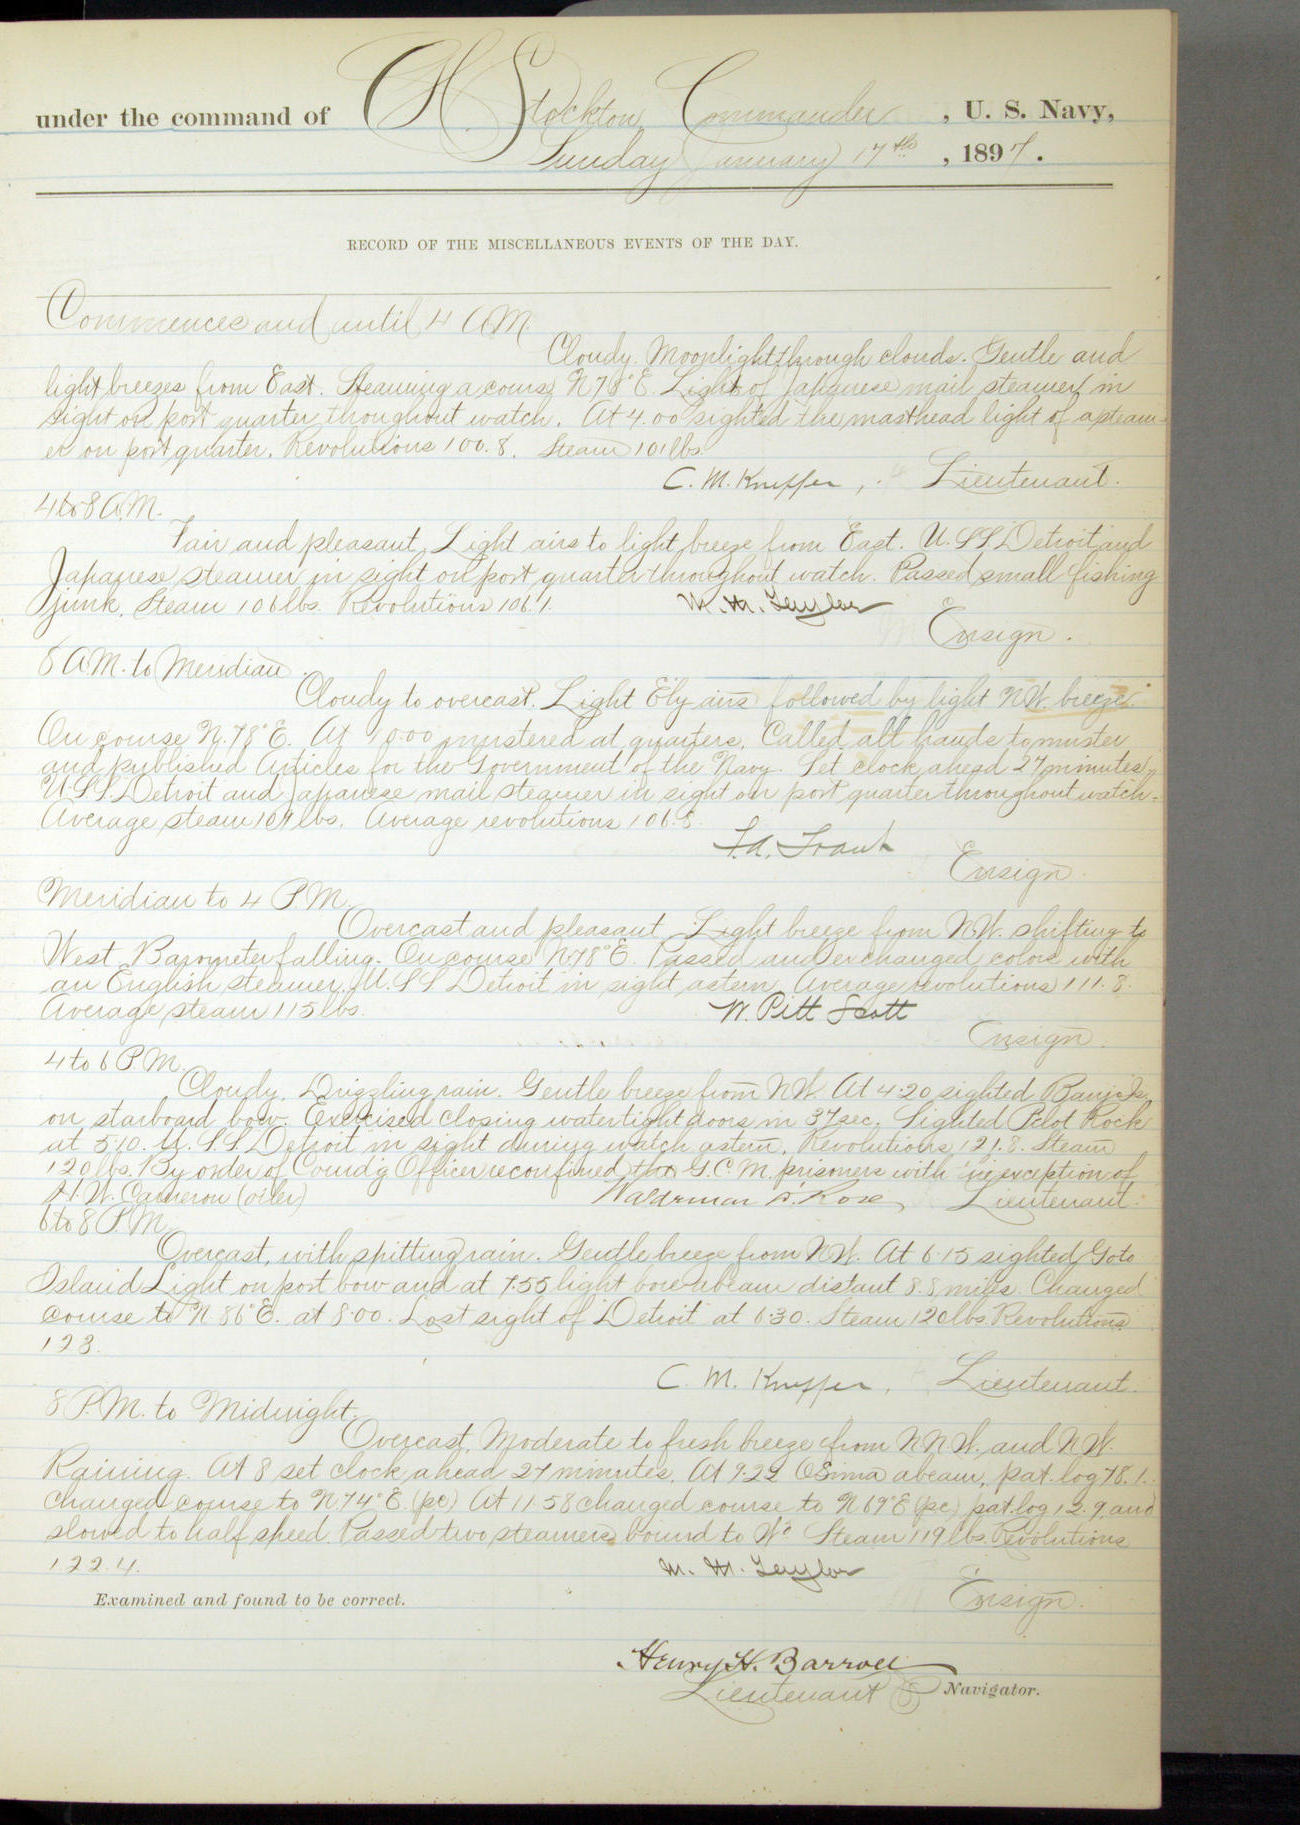 under the command of C. H. Stockton, Commander, U. S. Navy,
Sunday January 17th, 1897.
RECORD OF THE MISCELLANEOUS EVENTS OF THE DAY.
Commences and until 4 A.M.
Cloudy. Moonlight through clouds. Gentle and
light breezes from East. Steaming a course N78°E. Lights of Japanese mail steamer in
sight on port quarter throughout watch. At 4.00 sighted the masthead light of a steam-
er on port quarter. Revolutions 100.8. Steam 101 lbs.
C. M. Knepper, Lieutenant.
4 to 8 A.M.
Fair and pleasant. Light airs to light breeze from East. U.S.S. Detroit and
Japanese steamer in sight on port quarter throughout watch. Passed small fishing
junk. Steam 106 lbs. Revolutions 106.1.
M. M. Taylor
Ensign.
8 A.M. to Meridian.
Cloudy to overcast. Light E'ly airs followed by light NW. breeze.
On course N.78°E. At 10.00 mustered at quarters. Called all hands to muster
and published Articles for the Government of the Navy. Set clock ahead 27 minutes.
U.S.S. Detroit and Japanese mail steamer in sight on port quarter throughout watch.
Average steam 107 lbs. Average revolutions 106.8.
F. A. Traut
Ensign.
Meridian to 4 P.M.
Overcast and pleasant. Light breeze from N.W. shifting to
West. Barometer falling. On course N78°E. Passed and exchanged colors with
an English steamer. U.S.S. Detroit in sight astern. Average revolutions 111.8.
Average steam 115 lbs.
W. Pitt Scott
Ensign.
4 to 6 P.M.
Cloudy. Drizzling rain. Gentle breeze from NW. At 4.20 sighted Is.
on starboard bow. Exercised closing watertight doors in 37 sec. Sighted Rock
at 5.10. U.S.S. Detroit in sight during watch astern. Revolutions 121.8. Steam
120 lbs. By order of Comd'g Officer reconfined the G.C.M. prisoners with the exception of
H. W. Cameron (oiler)
Lieutenant.
6 to 8 P.M.
Overcast, with spitting rain. Gentle breeze from NW. At 6.15 sighted Goto
Island Light on port bow and at 7.55 light bore abeam distant 8.8 miles. Changed
course to N.86°E. at 8.00. Lost sight of Detroit at 6.30. Steam 120 lbs. Revolutions
123.
C. M. Knepper, Lieutenant.
8 P.M. to Midnight.
Overcast. Moderate to fresh breeze from NNW. and NW.
Raining. At 8 set clock ahead 27 minutes. At 9.22 Osima abeam, pat. log 78.1.
Changed course to N.74°E (pc) At 11.58 changed course to N 69°E (pc) pat. log 12.9, and
slowed to half speed. Passed two steamers bound to Wd. Steam 119 lbs. Revolutions
122.4.
M. M. Taylor
Ensign.
Examined and found to be correct.
Henry H. Barroll
Lieutenant & Navigator.